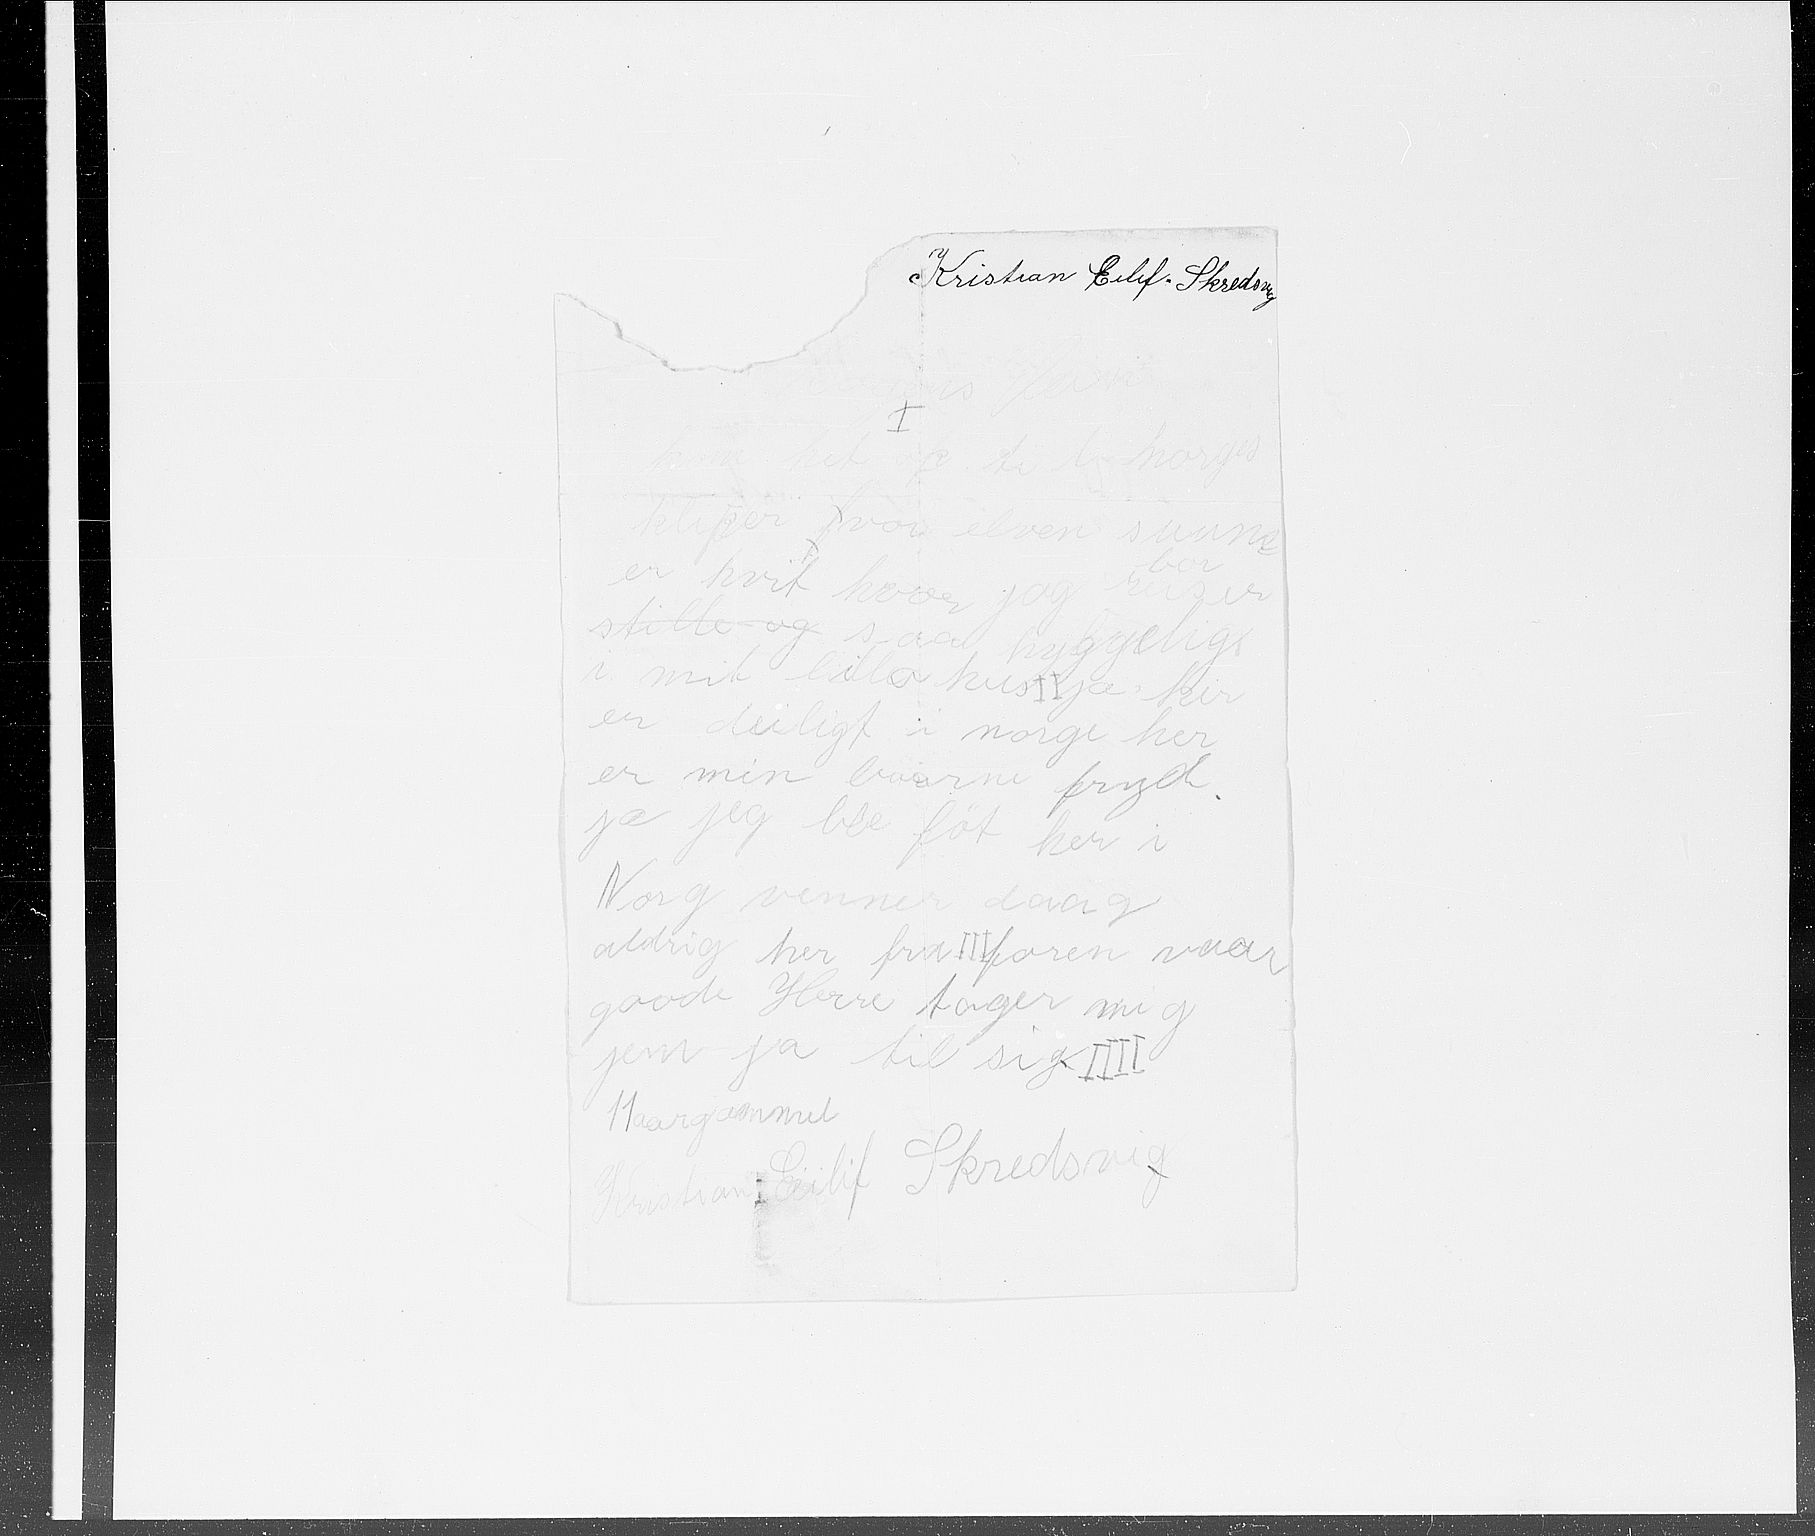 Kristian Eilif. Skredsvig
I
het op til norges
kliper hvor elven suune
er hvit hvor jog bor reiser
stille og saa hyggeligt
i mit lille hus II ja. her
er deiligt i norge her
er min baarne fryd.
ja jeg ble föt her i
Norg venner daag
aldrig her fra III foren vaar
goode Herre tager mig
jem ja til sig IIII
11 aargammel
Kristian Eilif Skredsvig